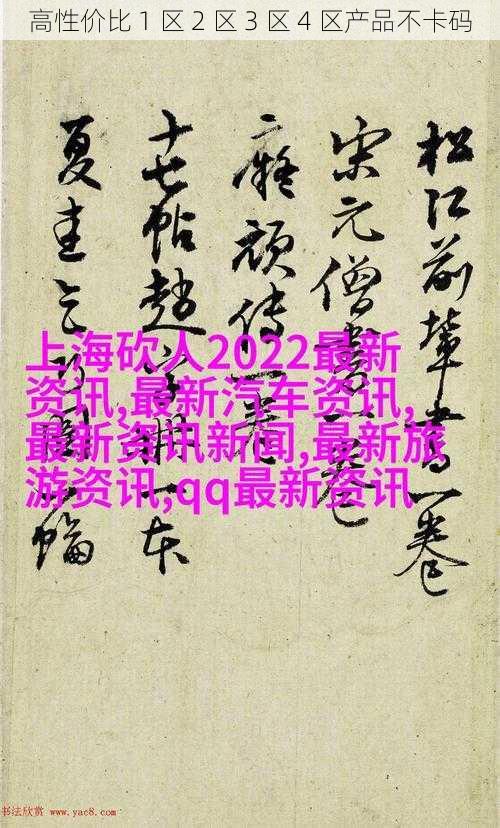 高性价比1区2区3区4区产品不卡码
松江前辈书一卷
宋元僧书一卷
痴顽传一卷
十七帖赵字册一本
夏圭
幅
上海砍人2022最新
资讯,最新汽车资讯,
最新资讯新闻,最新旅
游资讯,qq最新资讯
书法欣赏 www.yac8.com